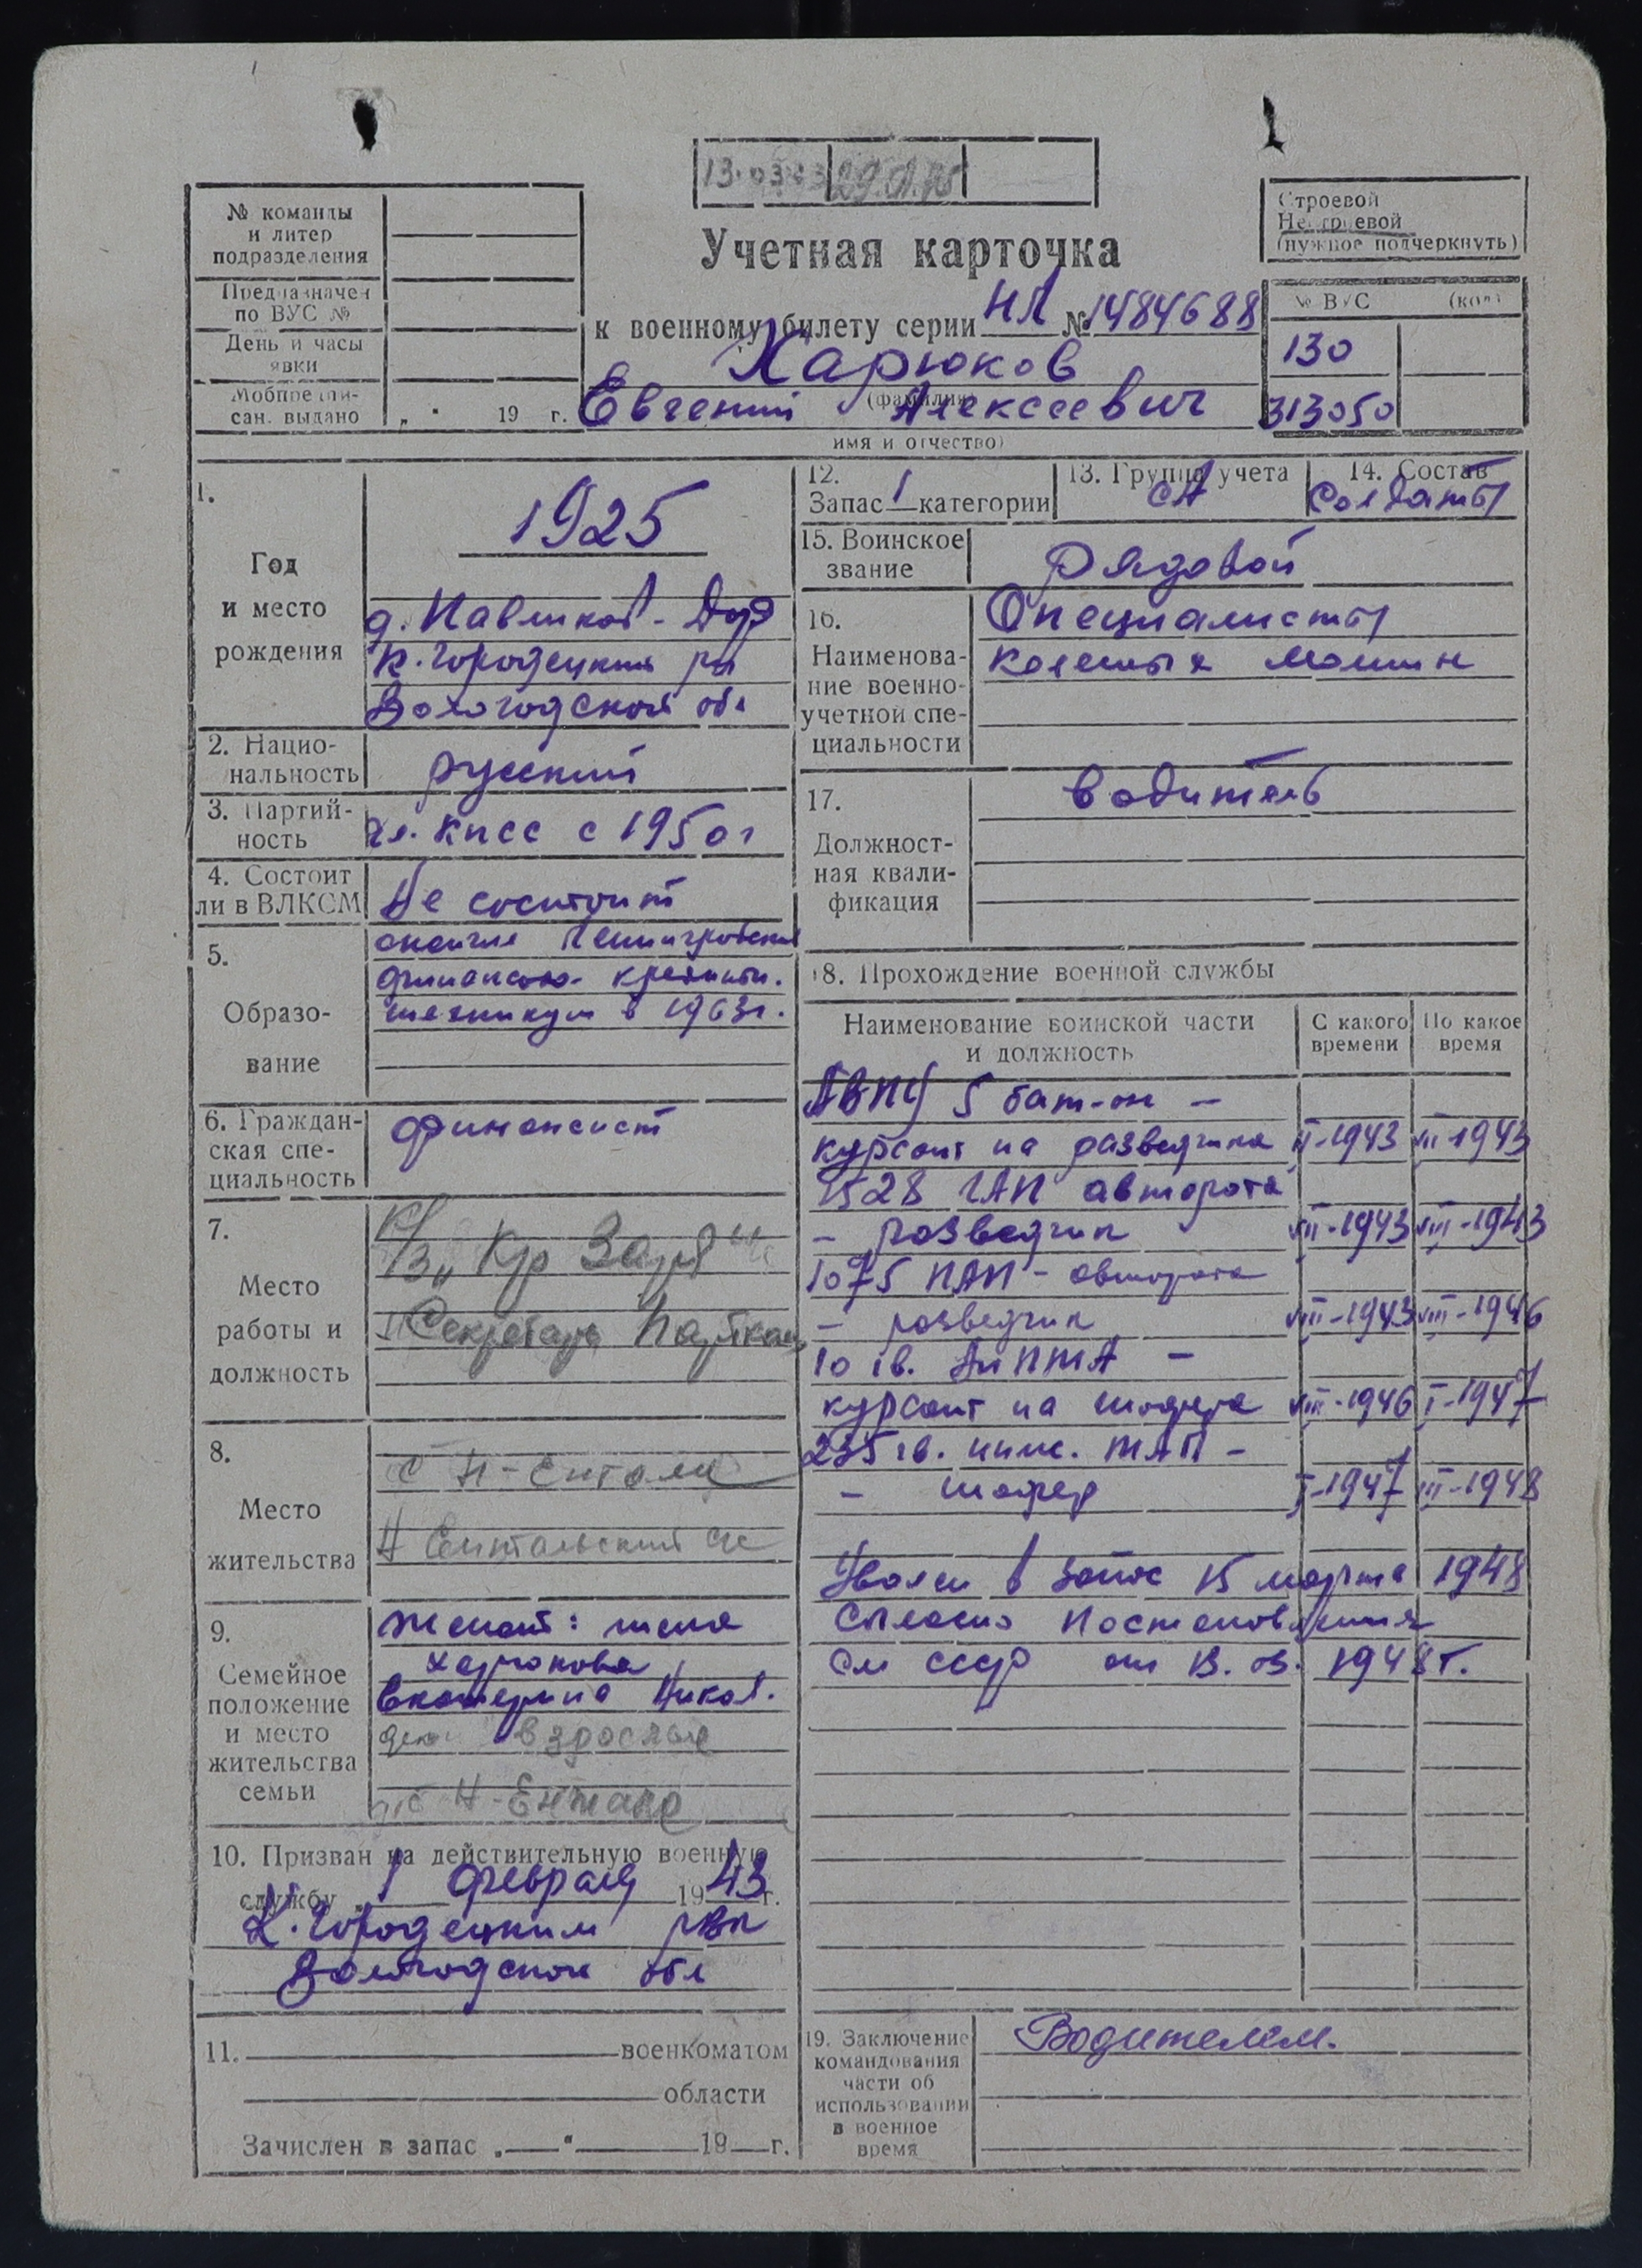 29.01.75
№ команды
и литер
подразделения
Предназначен
по ВУС №
День и часы
явки
Мобпредпи-
сан. выдано „ “ 19 г.
Строевой
Нестроевой
(нужное подчеркнуть)
Учетная карточка
к военному билету серии НЛ № 1484688
Харюков
(фамилия)
Евгений Алексеевич
имя и отчество)
№ ВУС (код)
130
313050
1.
Год
и место
рождения
1925
К. Городецкий р-н
Вологодской обл
2. Нацио-
нальность
русский
3. Партий-
ность
чл. КПСС с 1950 г
4. Состоит
ли в ВЛКСМ
Не состоит
5.
Образо-
вание
окончил Ленинградский
финансово-кредитн.
техникум в 1963г.
6. Граждан-
ская спе-
циальность
финансист
7.
Место
работы и
должность
К/з „Кр Заря“
Секретарь Парткома
8.
Место
жительства
с Н-Ентала
Н Ентальский с/с
9.
Семейное
положение
и место
жительства
семьи
Женат: жена
Харюкова
Екатерина Никол.
дети взрослые
Н-Ентала
10. Призван на действительную военную
службу „1 февраля 1943 г.
К. Городецким РВК
Вологодской обл
11. военкоматом
области
Зачислен в запас „ “ 19 г.
12.
Запас 1 категории
13. Группа учета
СА
14. Состав
Солдаты
15. Воинское
звание
рядовой
16.
Наименова-
ние военно-
учетной спе-
циальности
Специалисты
колесных машин
17.
Должност-
ная квали-
фикация
водитель
18. Прохождение военной службы
Наименование воинской части
и должность
С какого
времени
По какое
время
5 бат-он –
курсант на разведчика II-1943 VII-1943
1528 ГАП авторота
– разведчик VII-1943 VIII-1943
1075 ПАП – авторота
– разведчик VIII-1943 VIII-1946
10 гв.
курсант на шофера VIII-1946 I-1947
235 гв. –
– шофер I-1947 III-1948
Уволен в запас 15 марта 1948
Согласно Постановления
СМ СССР от 13. 03. 1948 г.
19. Заключение
командования
части об
использовании
в военное
время
Водителем.